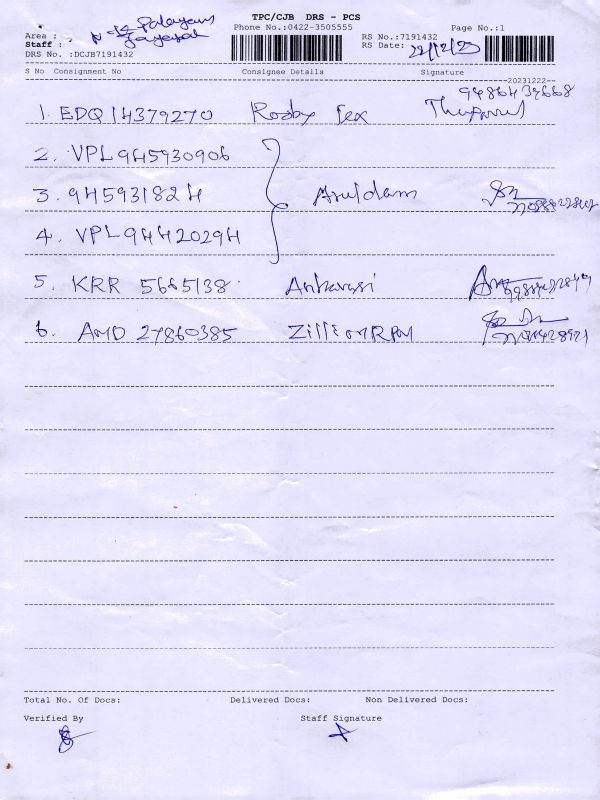 TPC/CJB DRS - PCS
Area : N.K. Palayam Phone No.:0422-3505555 RS No.:7191432 Page No.:1
Staff : Jayesah RS Date: 22/12/23
DRS No. :DCJB7191432
S No Consignment No Consignee Details Signature
20231222
9486432668
1. EDQ 14379270 Rooby Tex
2. VPL 945930906
3. 945931824 Aruldam
4. VPL 944202944
5. KRR 5665138 Anbarasi
6. AMD 27860385 Zillion RPM
Total No. Of Docs: Delivered Docs: Non Delivered Docs:
Verified By Staff Signature